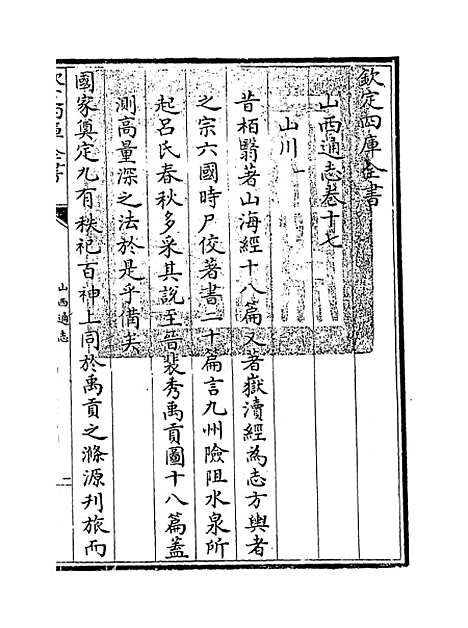 欽定四庫全書
山西通志卷十七
山川一
昔栢翳著山海經十八篇又著嶽瀆經為志方輿者
之宗六國時尸佼著書二十篇言九州險阻水泉所
起呂氏春秋多采其說至晉裴秀禹貢圖十八篇蓋
測髙量深之法於是乎備矣
國家奠定九有秩祀百神上同於禹貢之滌源刋旅而
山西通志